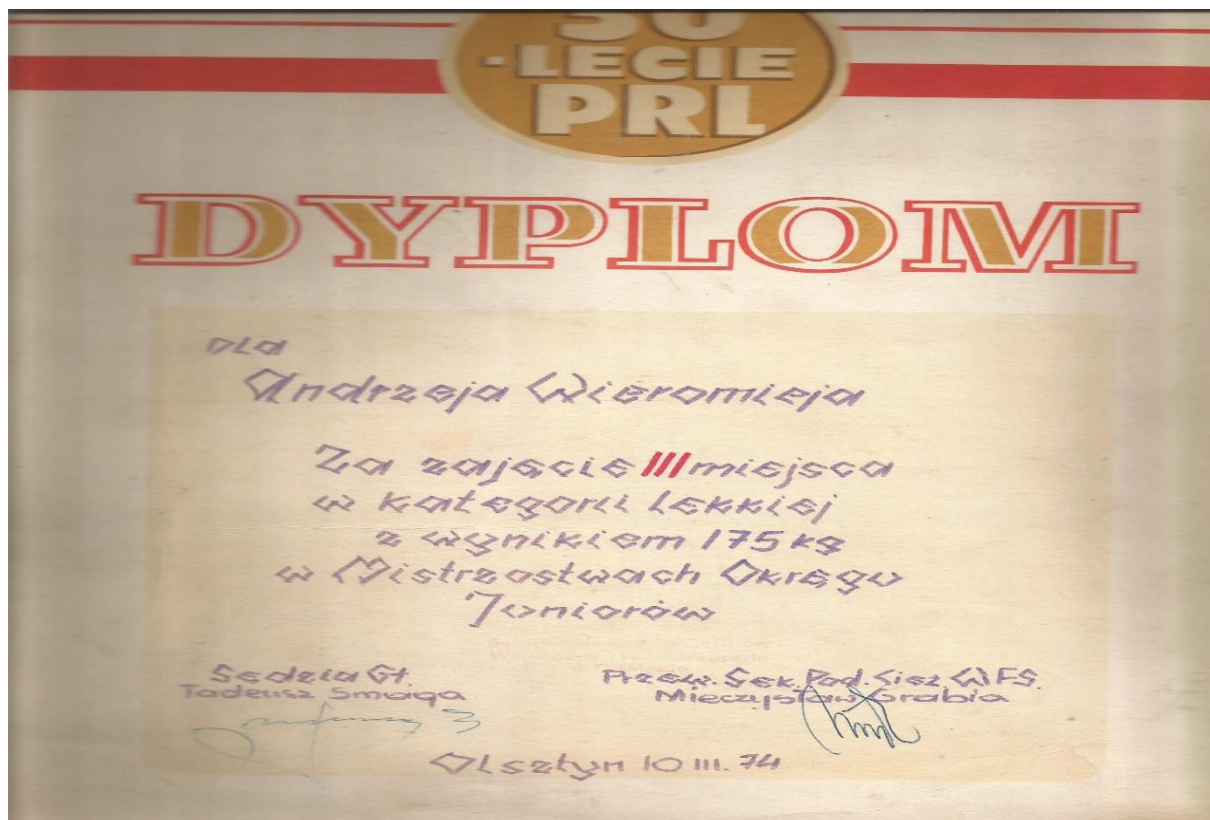 30
-LECIE
PRL
DYPLOM
DLA
Andrzeja Wieromieja
Za zajęcie III miejsca
w kategorii lekkiej
z wynikiem 175 kg
w Mistrzostwach Okręgu
Juniorów
Sędzia Gł.
Tadeusz Smaga
Przew. Sek. Pod. Cież. WFS.
Mieczysław Grabia
Olsztyn 10 III. 74